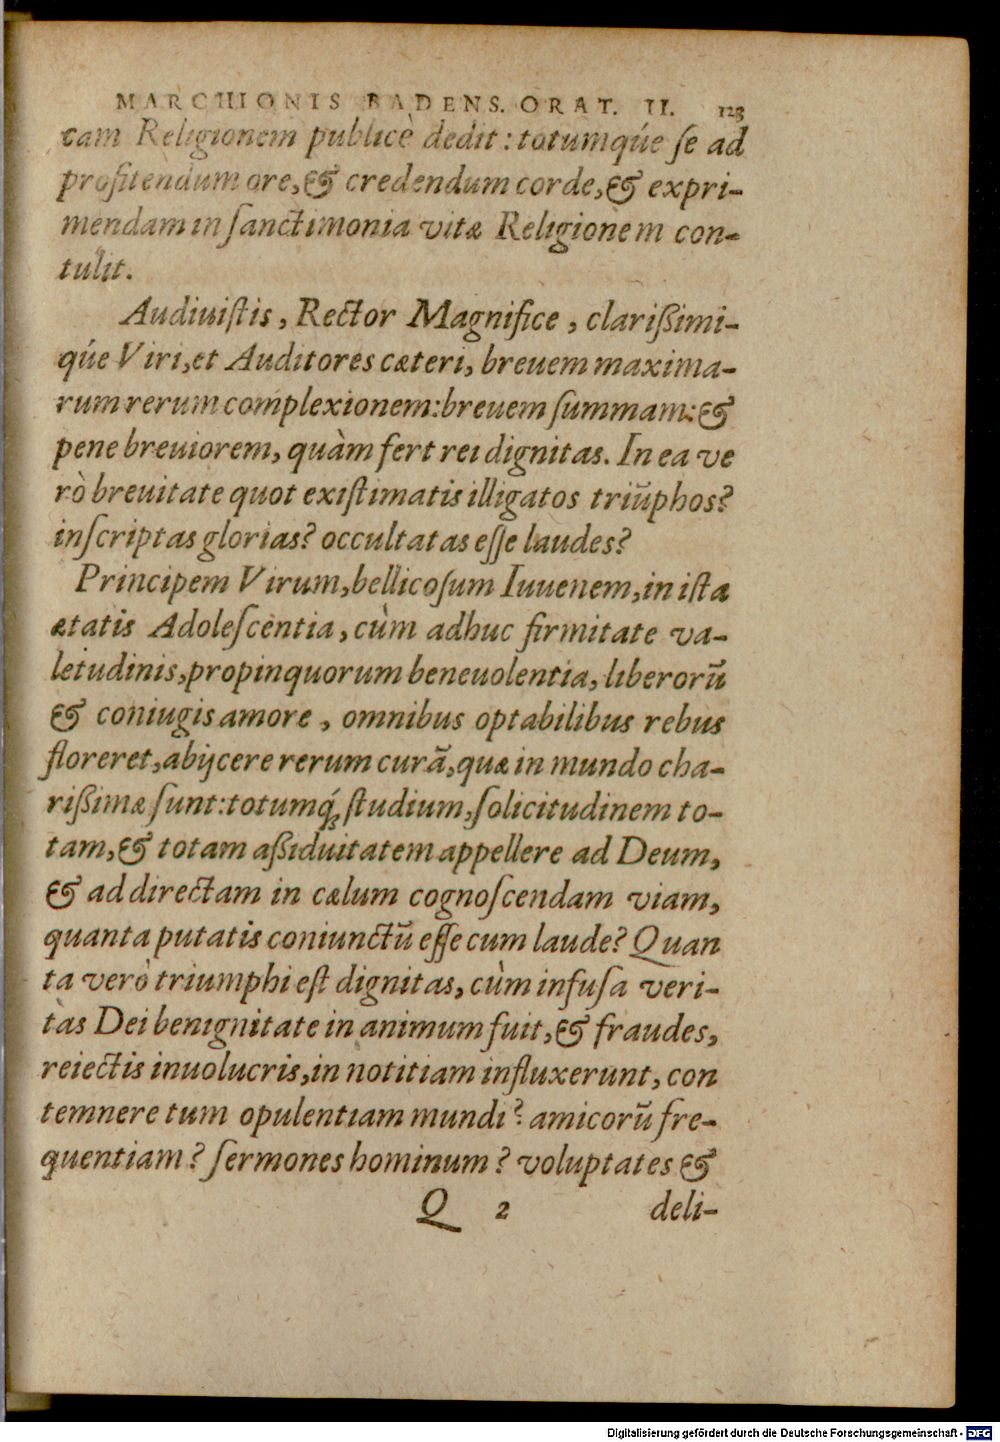 MARCHIONIS BADENS. ORAT. II. 123
cam Religionem publicè dedit: totumqúe ſe ad
profitendum ore, & credendum corde, & expri-
mendam in ſanctimonia vitæ Religionem con-
tulit.
Audiuiſtis, Rector Magnifice, clarißimi-
qúe Viri, et Auditores cæteri, breuem maxima-
rum rerum complexionem: breuem ſummam: &
pene breuiorem, quàm fert rei dignitas. In ea ve
rò breuitate quot exiſtimatis illigatos triũphos?
inſcriptas glorias? occultatas eſſe laudes?
Principem Virum, bellicoſum Iuuenem, in iſta
ætatis Adoleſcentia, cùm adhuc firmitate va-
letudinis, propinquorum beneuolentia, liberorũ
& coniugis amore, omnibus optabilibus rebus
floreret, abijcere rerum curã, quæ in mundo cha-
rißimæ ſunt: totumq́ꝫ ſtudium, ſolicitudinem to-
tam, & totam aßiduitatem appellere ad Deum,
& ad directam in cælum cognoſcendam viam,
quanta putatis coniunctũ eſſe cum laude? Quan
ta verò triumphi eſt dignitas, cùm infuſa veri-
tas Dei benignitate in animum fuit, & fraudes,
reiectis inuolucris, in notitiam influxerunt, con
temnere tum opulentiam mundi? amicorũ fre-
quentiam? ſermones hominum? voluptates &
Q 2 deli-
Digitalisierung gefördert durch die Deutsche Forschungsgemeinschaft - DFG